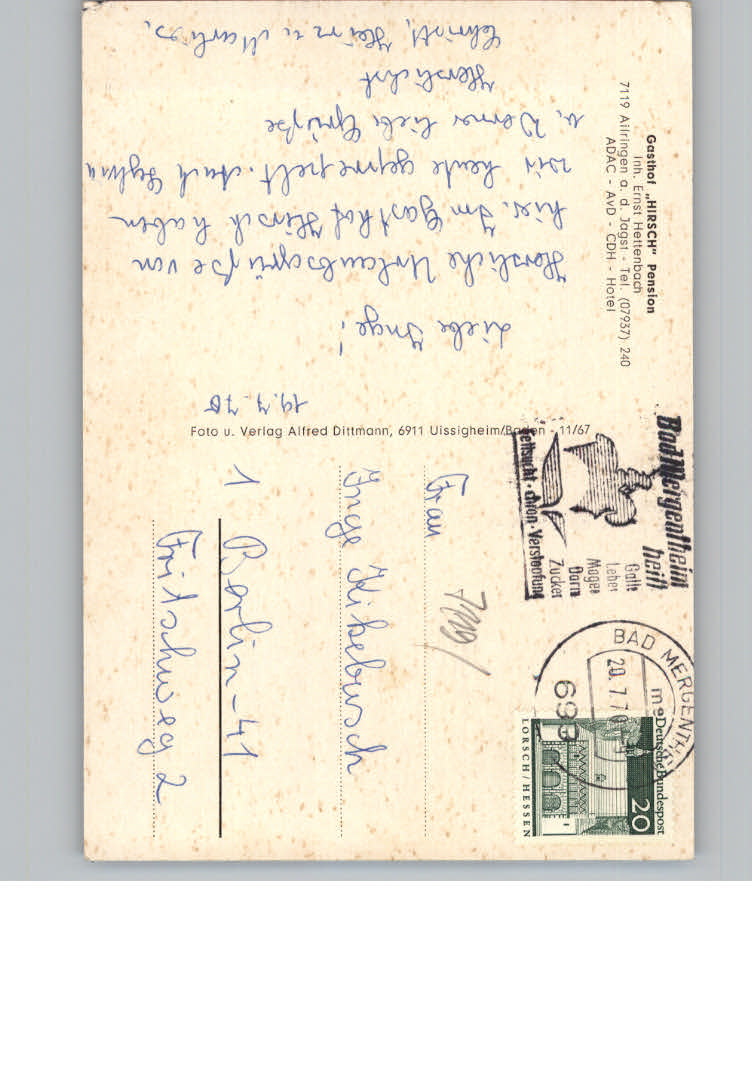 Gasthof „HIRSCH" Pension
Inh. Ernst Hettenbach
7119 Ailringen a. d. Jagst - Tel. (07937) 240
ADAC - AvD - CDH - Hotel
19.7.70
Liebe Inge!
Herzliche Urlaubsgrüße von
hier. Im Gasthof Hirsch haben
wir heute gespeist. Auch
u. Werner liebe Grüße
Herzlichst
Heinz u. Marlies.
Foto u. Verlag Alfred Dittmann, 6911 Uissigheim/Baden - 11/67
Bad Mergentheim
heilt
Galle
Leber
Magen
Darm
Zucker
Fettsucht · chron · Verstopfung
BAD MERGENTHEIM
20.7.70
699
Deutsche Bundespost
20
LORSCH / HESSEN
Frau
Inge Kikebusch
1 Berlin-41
Fritschweg 2